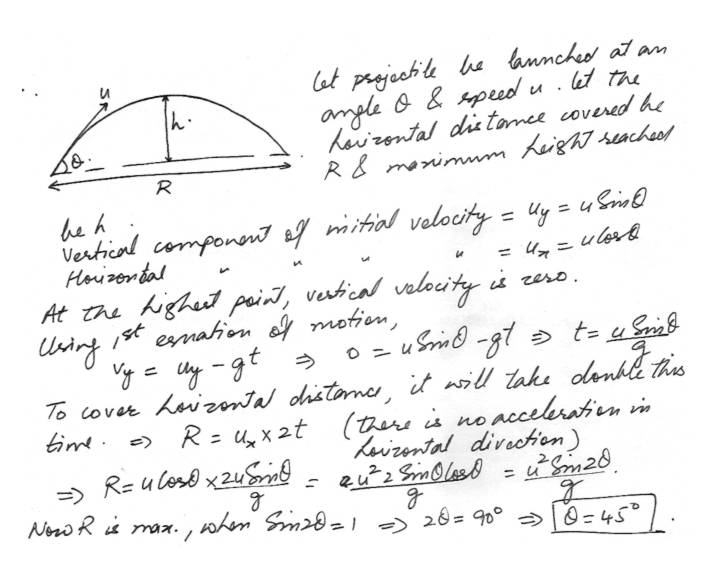 Let projectile be launched at an
angle θ & speed u. let the
horizontal distance covered be
R & maximum height reached
u
h.
θ.
R
be h
Vertical component of initial velocity = uy = u Sinθ
Horizontal " " " = ux = u Cosθ
At the highest point, vertical velocity is zero.
Using 1st equation of motion,
vy = uy - gt ⇒ 0 = u Sinθ - gt ⇒ t = u Sinθ/g
To cover horizontal distance, it will take double this
time. ⇒ R = ux × 2t (there is no acceleration in
horizontal direction)
⇒ R = u Cosθ × 2u Sinθ/g = u² 2 Sinθ Cosθ/g = u² Sin2θ/g.
Now R is max., when Sin2θ = 1 ⇒ 2θ = 90° ⇒ θ = 45°.